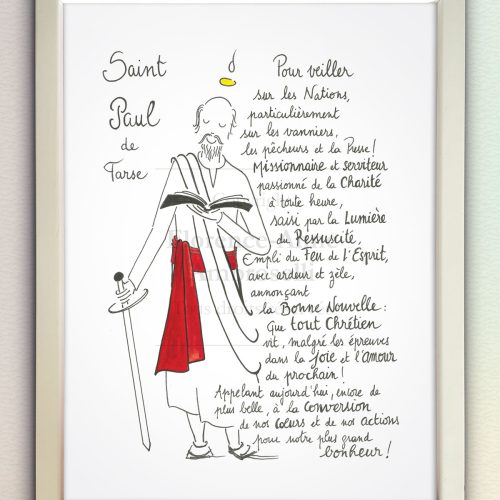 Saint
Paul
de
Tarse
Pour veiller
sur les Nations,
particulièrement
sur les vanniers,
les pêcheurs et la Presse!
Missionnaire et serviteur
passionné de la Charité
à toute heure,
saisi par la Lumière
du Ressuscité,
Empli du Feu de l'Esprit,
avec ardeur et zèle,
annonçant
la Bonne Nouvelle:
Que tout Chrétien
vit, malgré les épreuves
dans la joie et l'Amour
du prochain!
Appelant aujourd'hui, encore de
plus belle, à la conversion
de nos cœurs et de nos actions
pour notre plus grand
bonheur!